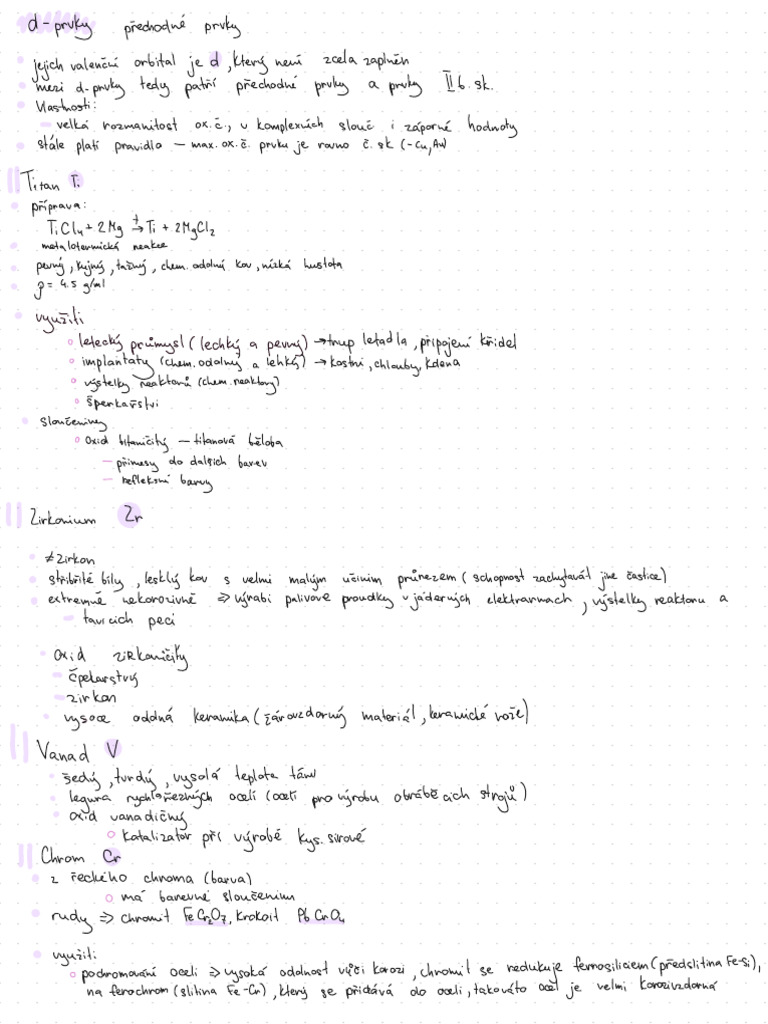 d-prvky přechodné prvky
jejich valenční orbital je d, který není zcela zaplněn
mezi d-prvky tedy patří přechodné prvky a prvky II b. sk.
Vlastnosti:
– velká rozmanitost ox.č., v komplexních slouč i záporné hodnoty
stále platí pravidlo – max. ox. č. prvku je rovno č. sk (-Cu, Au)
Titan Ti
příprava:
TiCl4 + 2Mg →t Ti + 2MgCl2
metalotermická reakce
pevný, kujný, tažný, chem. odolný kov, nízká hustota
ρ = 4.5 g/ml
využití
letecký průmysl (lechký a pevný) → trup letadla, připojení křídel
implantáty (chem. odolný a lehký) → kostní, chlouby, kolena
výstelky reaktorů (chem. reaktory)
šperkařství
sloučeniny
oxid titaničitý – titanová běloba
– přímesy do dalších barev
– reflexní barvy
Zirkonium Zr
≠ zirkon
stříbřitě bílý, lesklý kov s velmi malým účiním průřezem (schopnost zachytávat jiné částice)
extremně nekorozivně ⇒ výrábí palivové proudky v jáderných elektrarnach, výstelky reaktoru a
– tavících pecí
oxid zirkoničitý
– čpelarstvý
– zirkon
vysoce oddná keramika (žárovzdorný materiál, keramické nože)
Vanad V
šedý, tvrdý, vysolá teplota tání
legura rychlořezných ocelí (ocelí pro výrobu obráběcích strojů)
oxid vanadičný
katalizátor pří výrobě kys. sírové
Chrom Cr
z řeckého chroma (barva)
má barevné sloučeninm
rudy ⇒ chromit FeCr2O7, krokoit PbCrO4
využití:
pochromování oceli ⇒ vysoká odolnost vůči korozi, chromit se redukuje ferrosiliciem (předslitina Fe-Si),
na ferochrom (slitina Fe-Cr), který se přidává do oceli, takováto ocel je velmi korozivzdorná